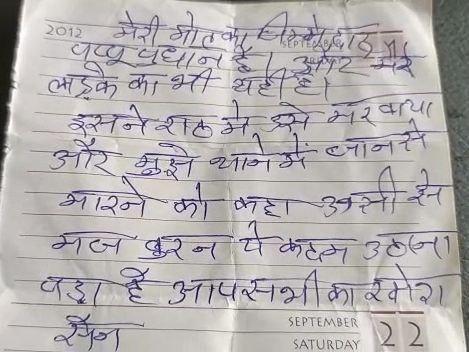 2012 मेरी मोत का जिम्मेदार
SEPTEMBER
पप्पू प्रधान है। और मेरे
लड़के का भी यही है।
इसने राज मे उसे मरवाया
और मुझे थाने में जानसे
मारने को कहा उसी
मज बुरन ये कदम उठाना
पड़ा है आप सभी का रमेश
सैन
SEPTEMBER
SATURDAY 22